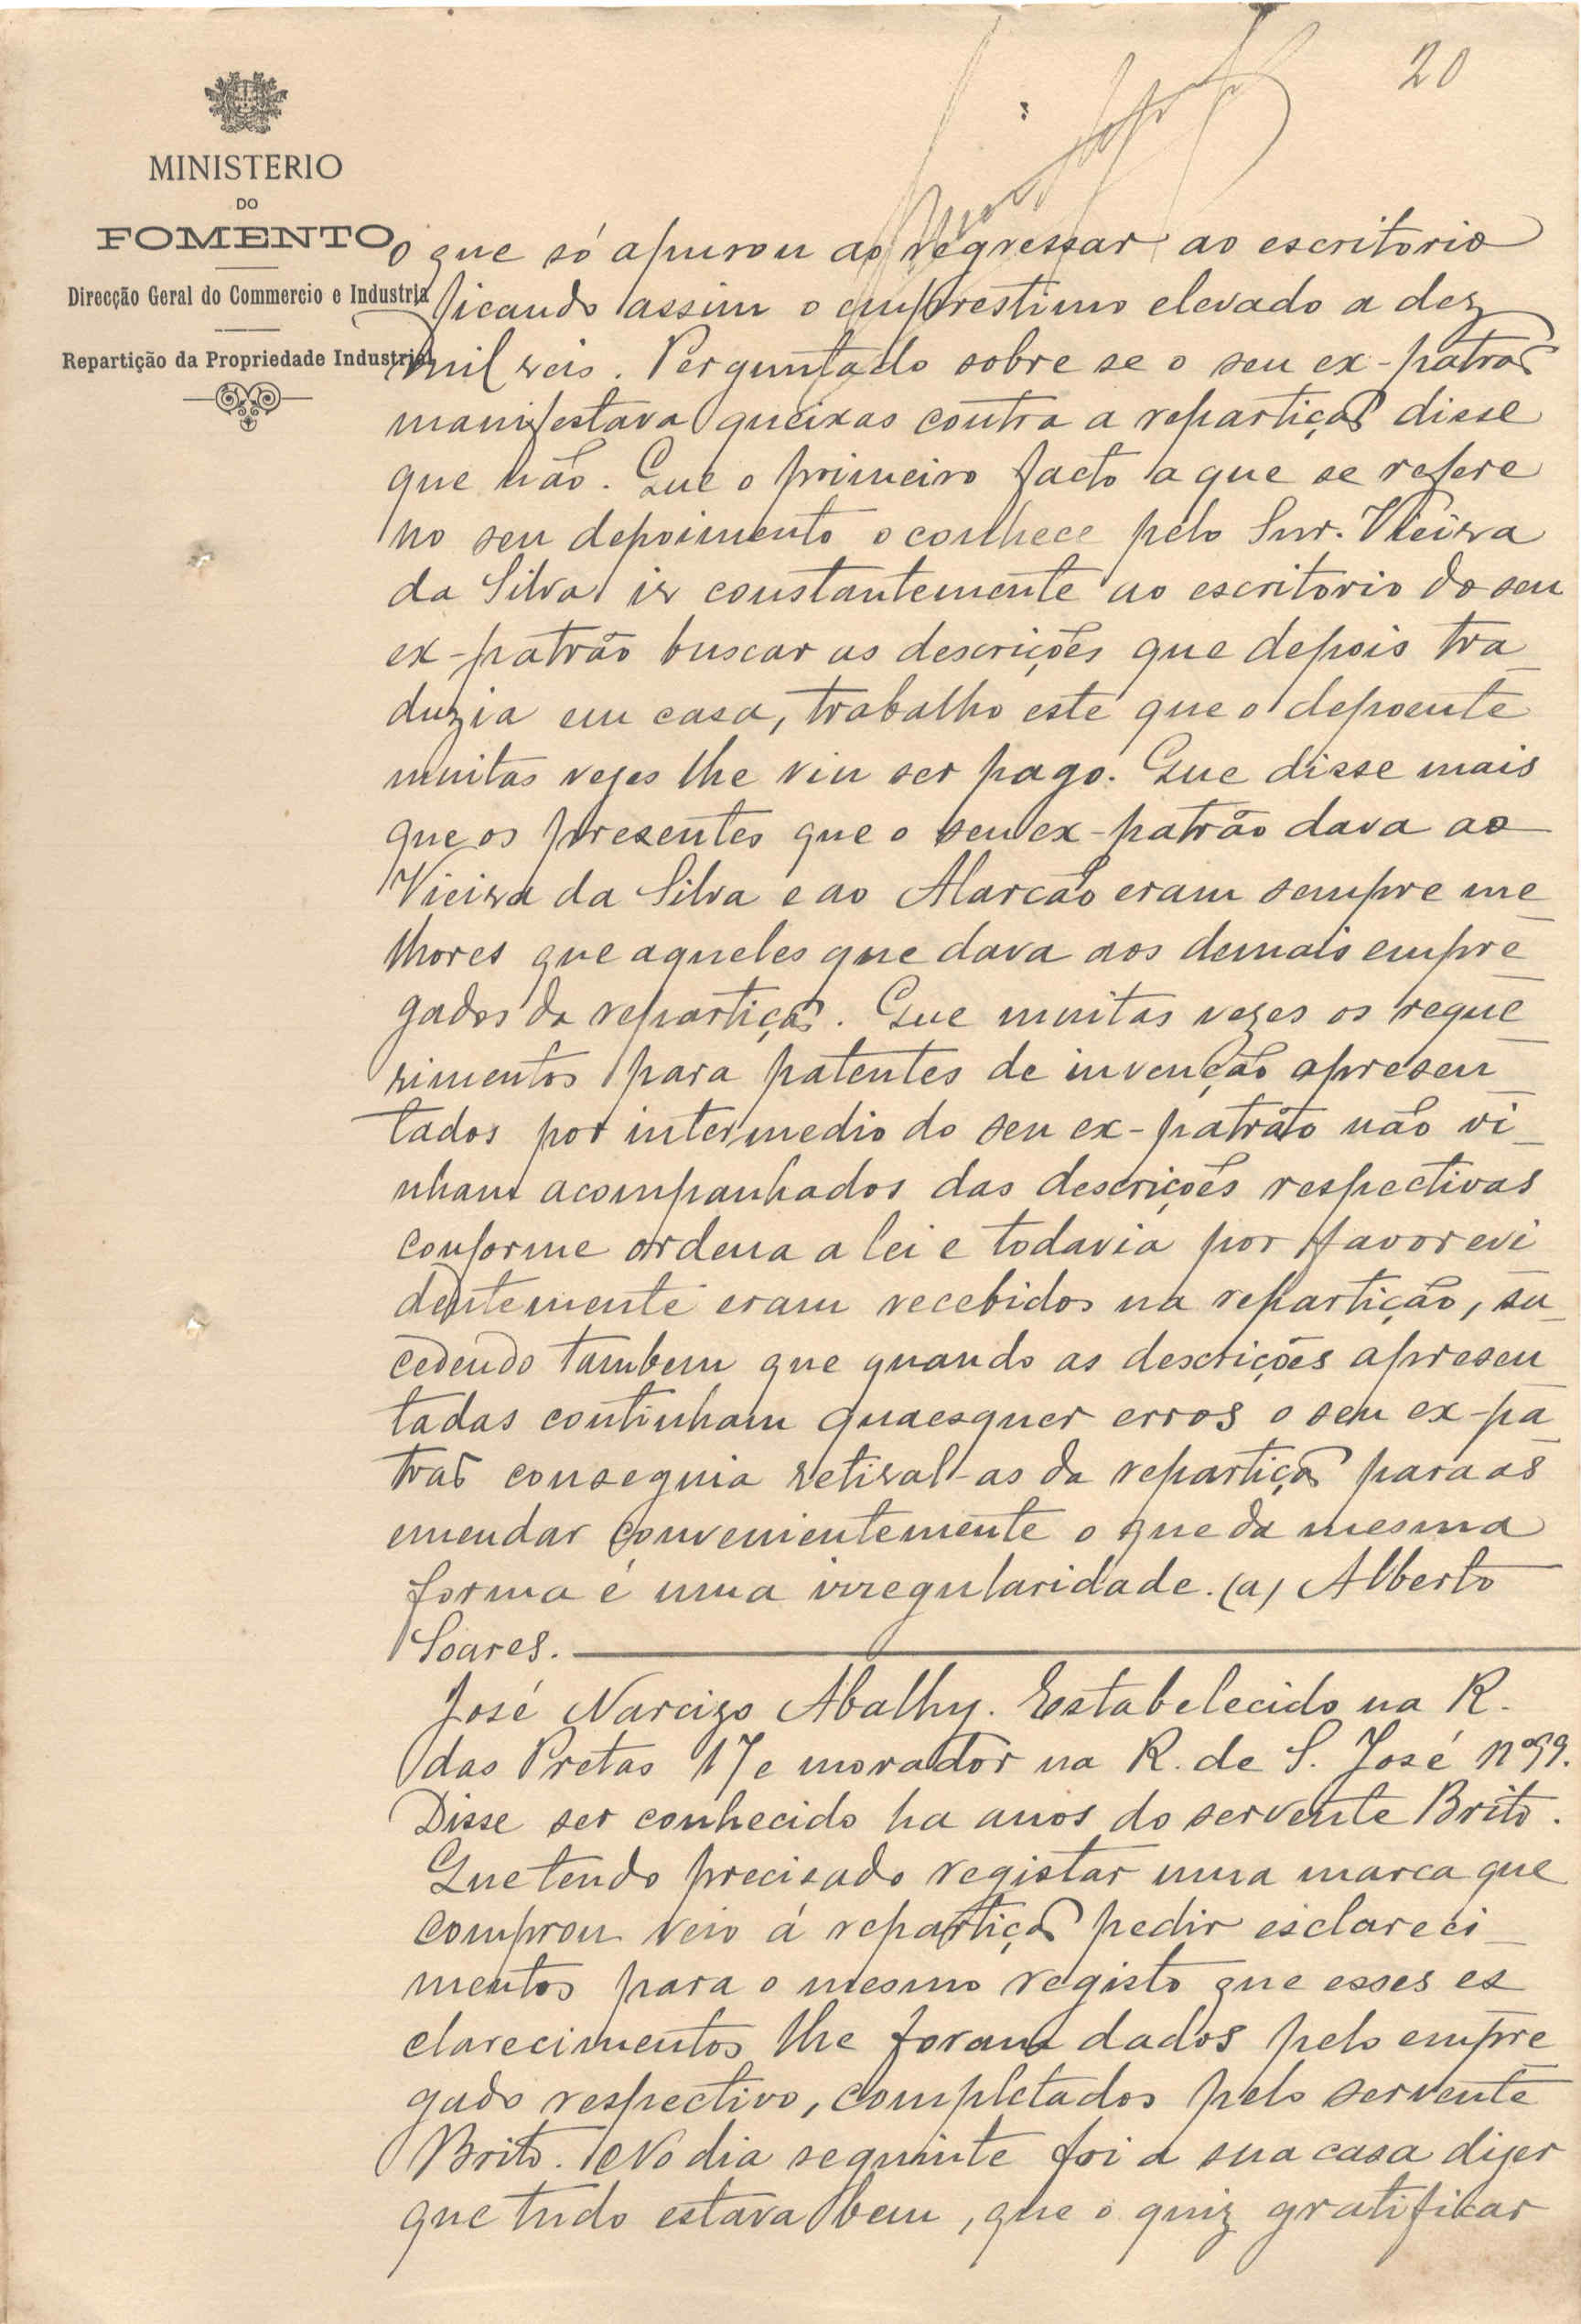 20
MINISTERIO
DO
FOMENTO
Direcção Geral do Commercio e Industria
Repartição da Propriedade Industrial
o que só apurou ao regressar ao escritorio
ficando assim o emprestimo elevado a dez
mil reis. Perguntado sobre se o seu ex-patrão
manifestava queixas contra a repartição disse
que não. Que o primeiro facto a que se refere
no seu depoimento o conhece pelo Snr. Vieira
da Silva ir constantemente ao escritorio do seu
ex-patrão buscar as descrições que depois tra_
duzia em casa, trabalho este que o depoente
muitas vezes lhe viu ser pago. Que disse mais
que os presentes que o seu ex-patrão dava ao
Vieira da Silva e ao Alarcão eram sempre me_
lhores que aqueles que dava aos demais empre_
gados da repartição. Que muitas vezes os reque_
rimentos para patentes de invenção apresen_
tados por intermedio do seu ex-patrão não vi_
nham acompanhados das descrições respectivas
conforme ordena a lei e todavia por favor evi_
dentemente eram recebidos na repartição, su_
cedendo tambem que quando as descrições apresen_
tadas continham quaesquer erros o seu ex-pa_
trão conseguia retiral-as da repartição para as
emendar convenientemente o que da mesma
forma é uma irregularidade. (a) Alberto
Soares.
José Narcizo Abalhy. Estabelecido na R.
das Pretas 17 e morador na R. de S. José nº 99.
Disse ser conhecido ha anos do servente Brito.
Que tendo precisado registar uma marca que
comprou veio á repartição pedir esclareci_
mentos para o mesmo registo que esses es
clarecimentos lhe foram dados pelo empre_
gado respectivo, completados pelo servente
Brito. No dia seguinte foi a sua casa dizer
que tudo estava bem, que o quiz gratificar